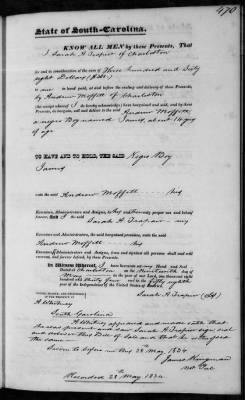 470
State of South-Carolina.
KNOW ALL MEN by these Presents, That
I Sarah A Trapier of Charleston
for and in consideration of the sum of Three hundred and Sixty
eight Dollars
to me in hand paid, at and before the sealing and delivery of these Presents,
by Andrew Moffett of Charleston
the receipt whereof I do hereby acknowledge) have bargained and sold, and by these
Presents, do bargain, sell and deliver to the said Andrew Moffett
a negro Boy named James, about 14 years
of age
TO HAVE AND TO HOLD, THE SAID Negro Boy
James
unto the said Andrew Moffett his
Executors, Administrators and Assigns, to his and their only proper use and behoof
forever. And I the said Sarah A Trapier my
Executors and Administrators, the said bargained premises, unto the said
Andrew Moffett his
Executors, Administrators and Assigns, from and against all persons shall and will
warrant, and forever defend, by these Presents.
In Witness Whereof, I have hereunto set my Hand and Seal
Dated at Charleston on the Nineteenth day of
May in the year of our Lord, one thousand eight
hundred and thirty four and in the fifty eighth
year of the Independence of the United States of America.
SIGNED, SEALED, AND DELIVERED
IN THE PRESENCE OF
Sarah A Trapier (LS)
A Whitney
South Carolina
A Whitney appeared and made oath that
he was present and saw Sarah A Trapier sign seal
and deliver this Bill of Sale and that he witnessed
the same
Sworn to before me this 28th May 1834
James Kingman
Not Pub
Recorded 28th May 1834